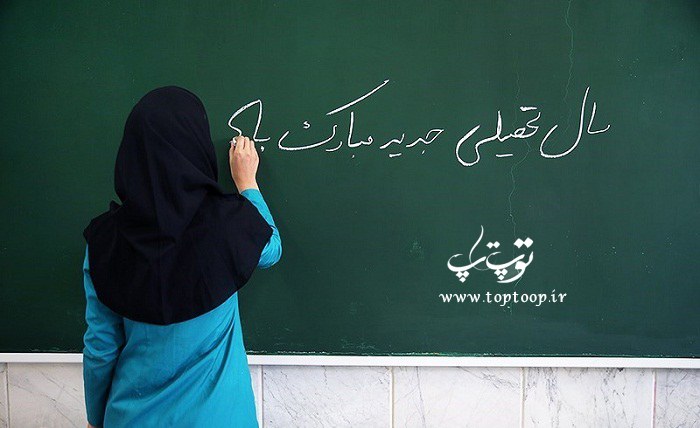 سال تحصیلی جدید مبارک باد
توپ تاپ
www.toptoop.ir